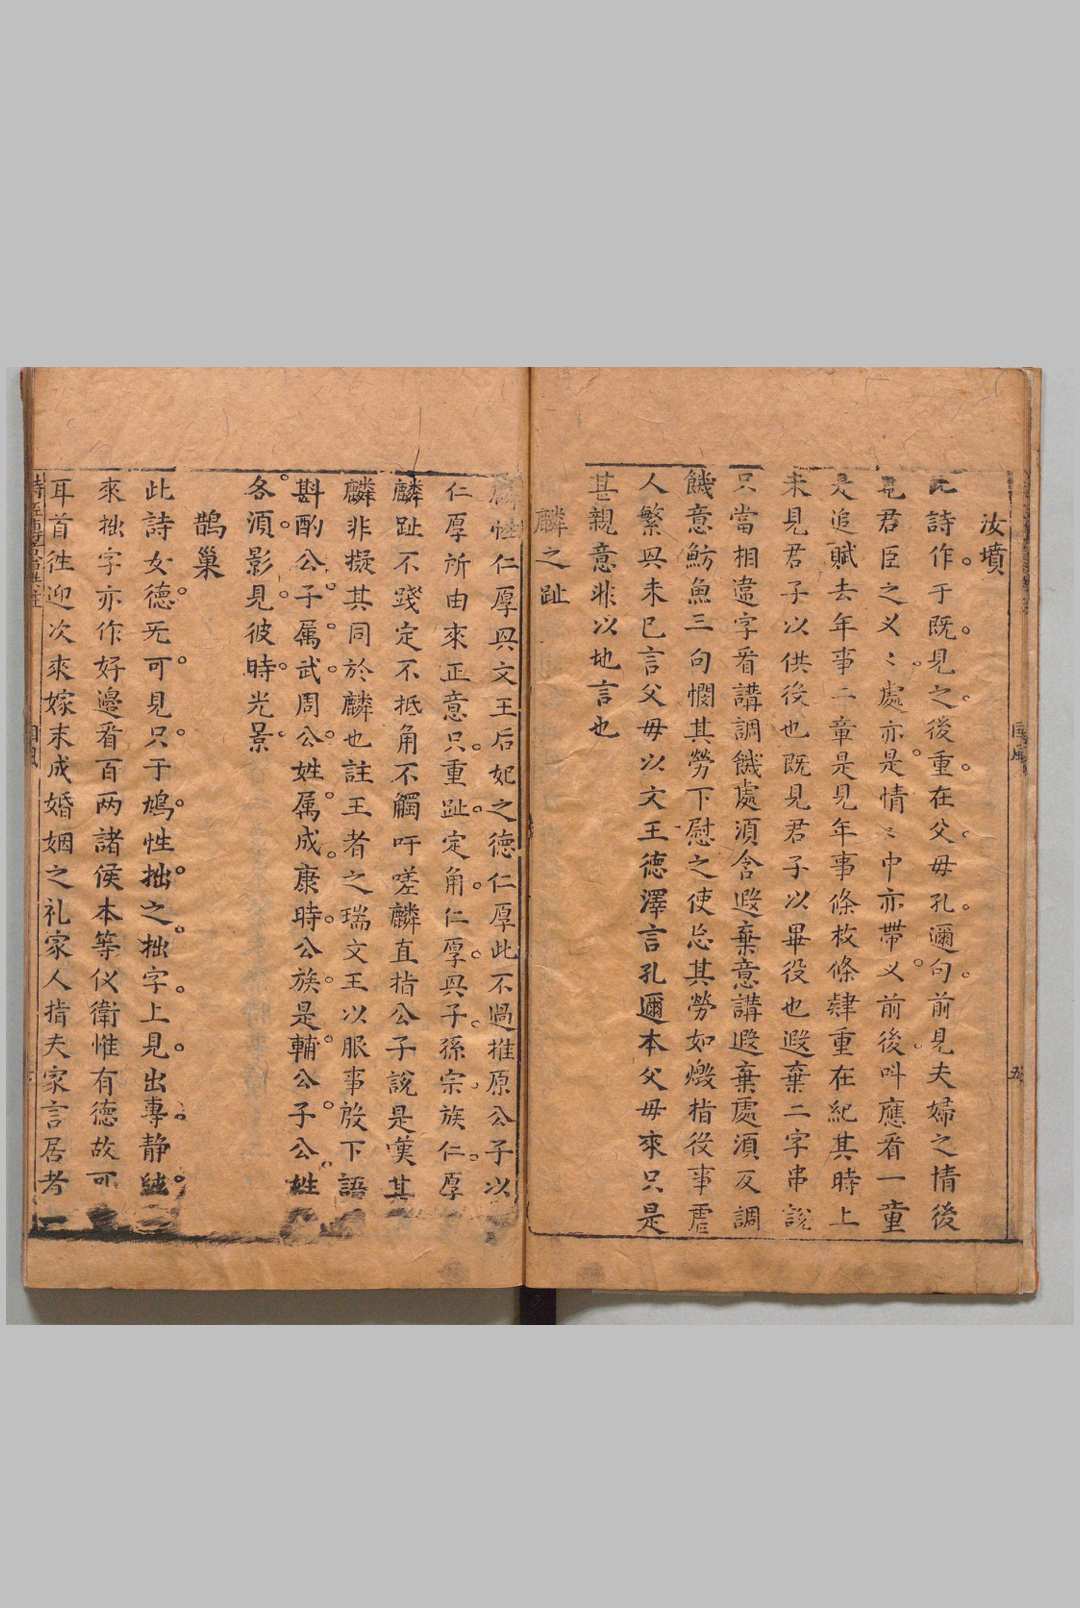 汝墳
此詩作于既見之後重在父母孔邇句前見夫婦之情後
見君臣之义〻處亦是情〻中亦帶义前後叫應看一章
是追賦去年事二章是見年事條枚條肄重在紀其時上
未見君子以供役也既見君子以畢役也遐棄二字串說
只當相違字看講調饑處須含遐棄意講遐棄處須反調
饑意魴魚三句憫其勞下慰之使忘其勞如燬指役事虐
人繁與未已言父母以文王德澤言孔邇本父母來只是
甚親意非以地言也
麟之趾
麟性仁厚與文王后妃之德仁厚此不過推原公子以
仁厚所由來正意只重趾定角仁厚與子孫宗族仁厚
麟趾不踐定不抵角不觸吁嗟麟直指公子說是嘆其
麟非擬其同於麟也註王者之瑞文王以服事殷下語
斟酌公子属武周公姓属成康時公族是輔公子公姓
各須影見彼時光景
鵲巢
此詩女德无可見只于鳩性拙之拙字上見出專静純
來拙字亦作好邊看百两諸侯本等仪衛惟有德故可
耳首徃迎次來嫁末成婚姻之礼家人指夫家言居者
国風